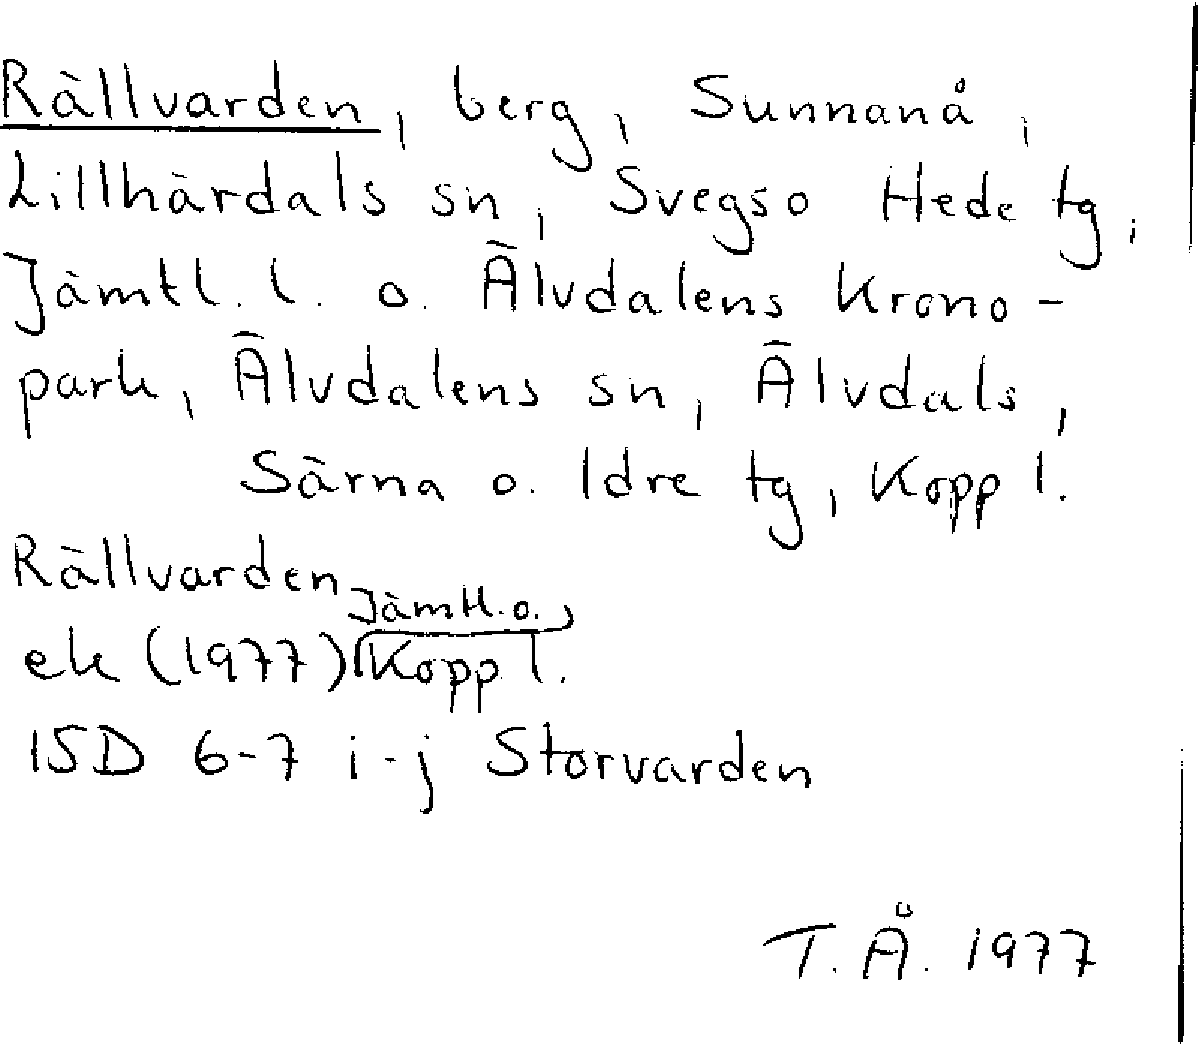 Rällvarden, berg, Sunnanå,
Lillhärdals sn, Svegs o Hede tg,
Jämtl. l. o. Älvdalens Krono-
park, Älvdalens sn, Älvdals,
Särna o. Idre tg, Kopp l.
Rällvarden
Jämtl. o.
ek (1977) Kopp l.
15D 6-7 i-j Storvarden
T. Å. 1977